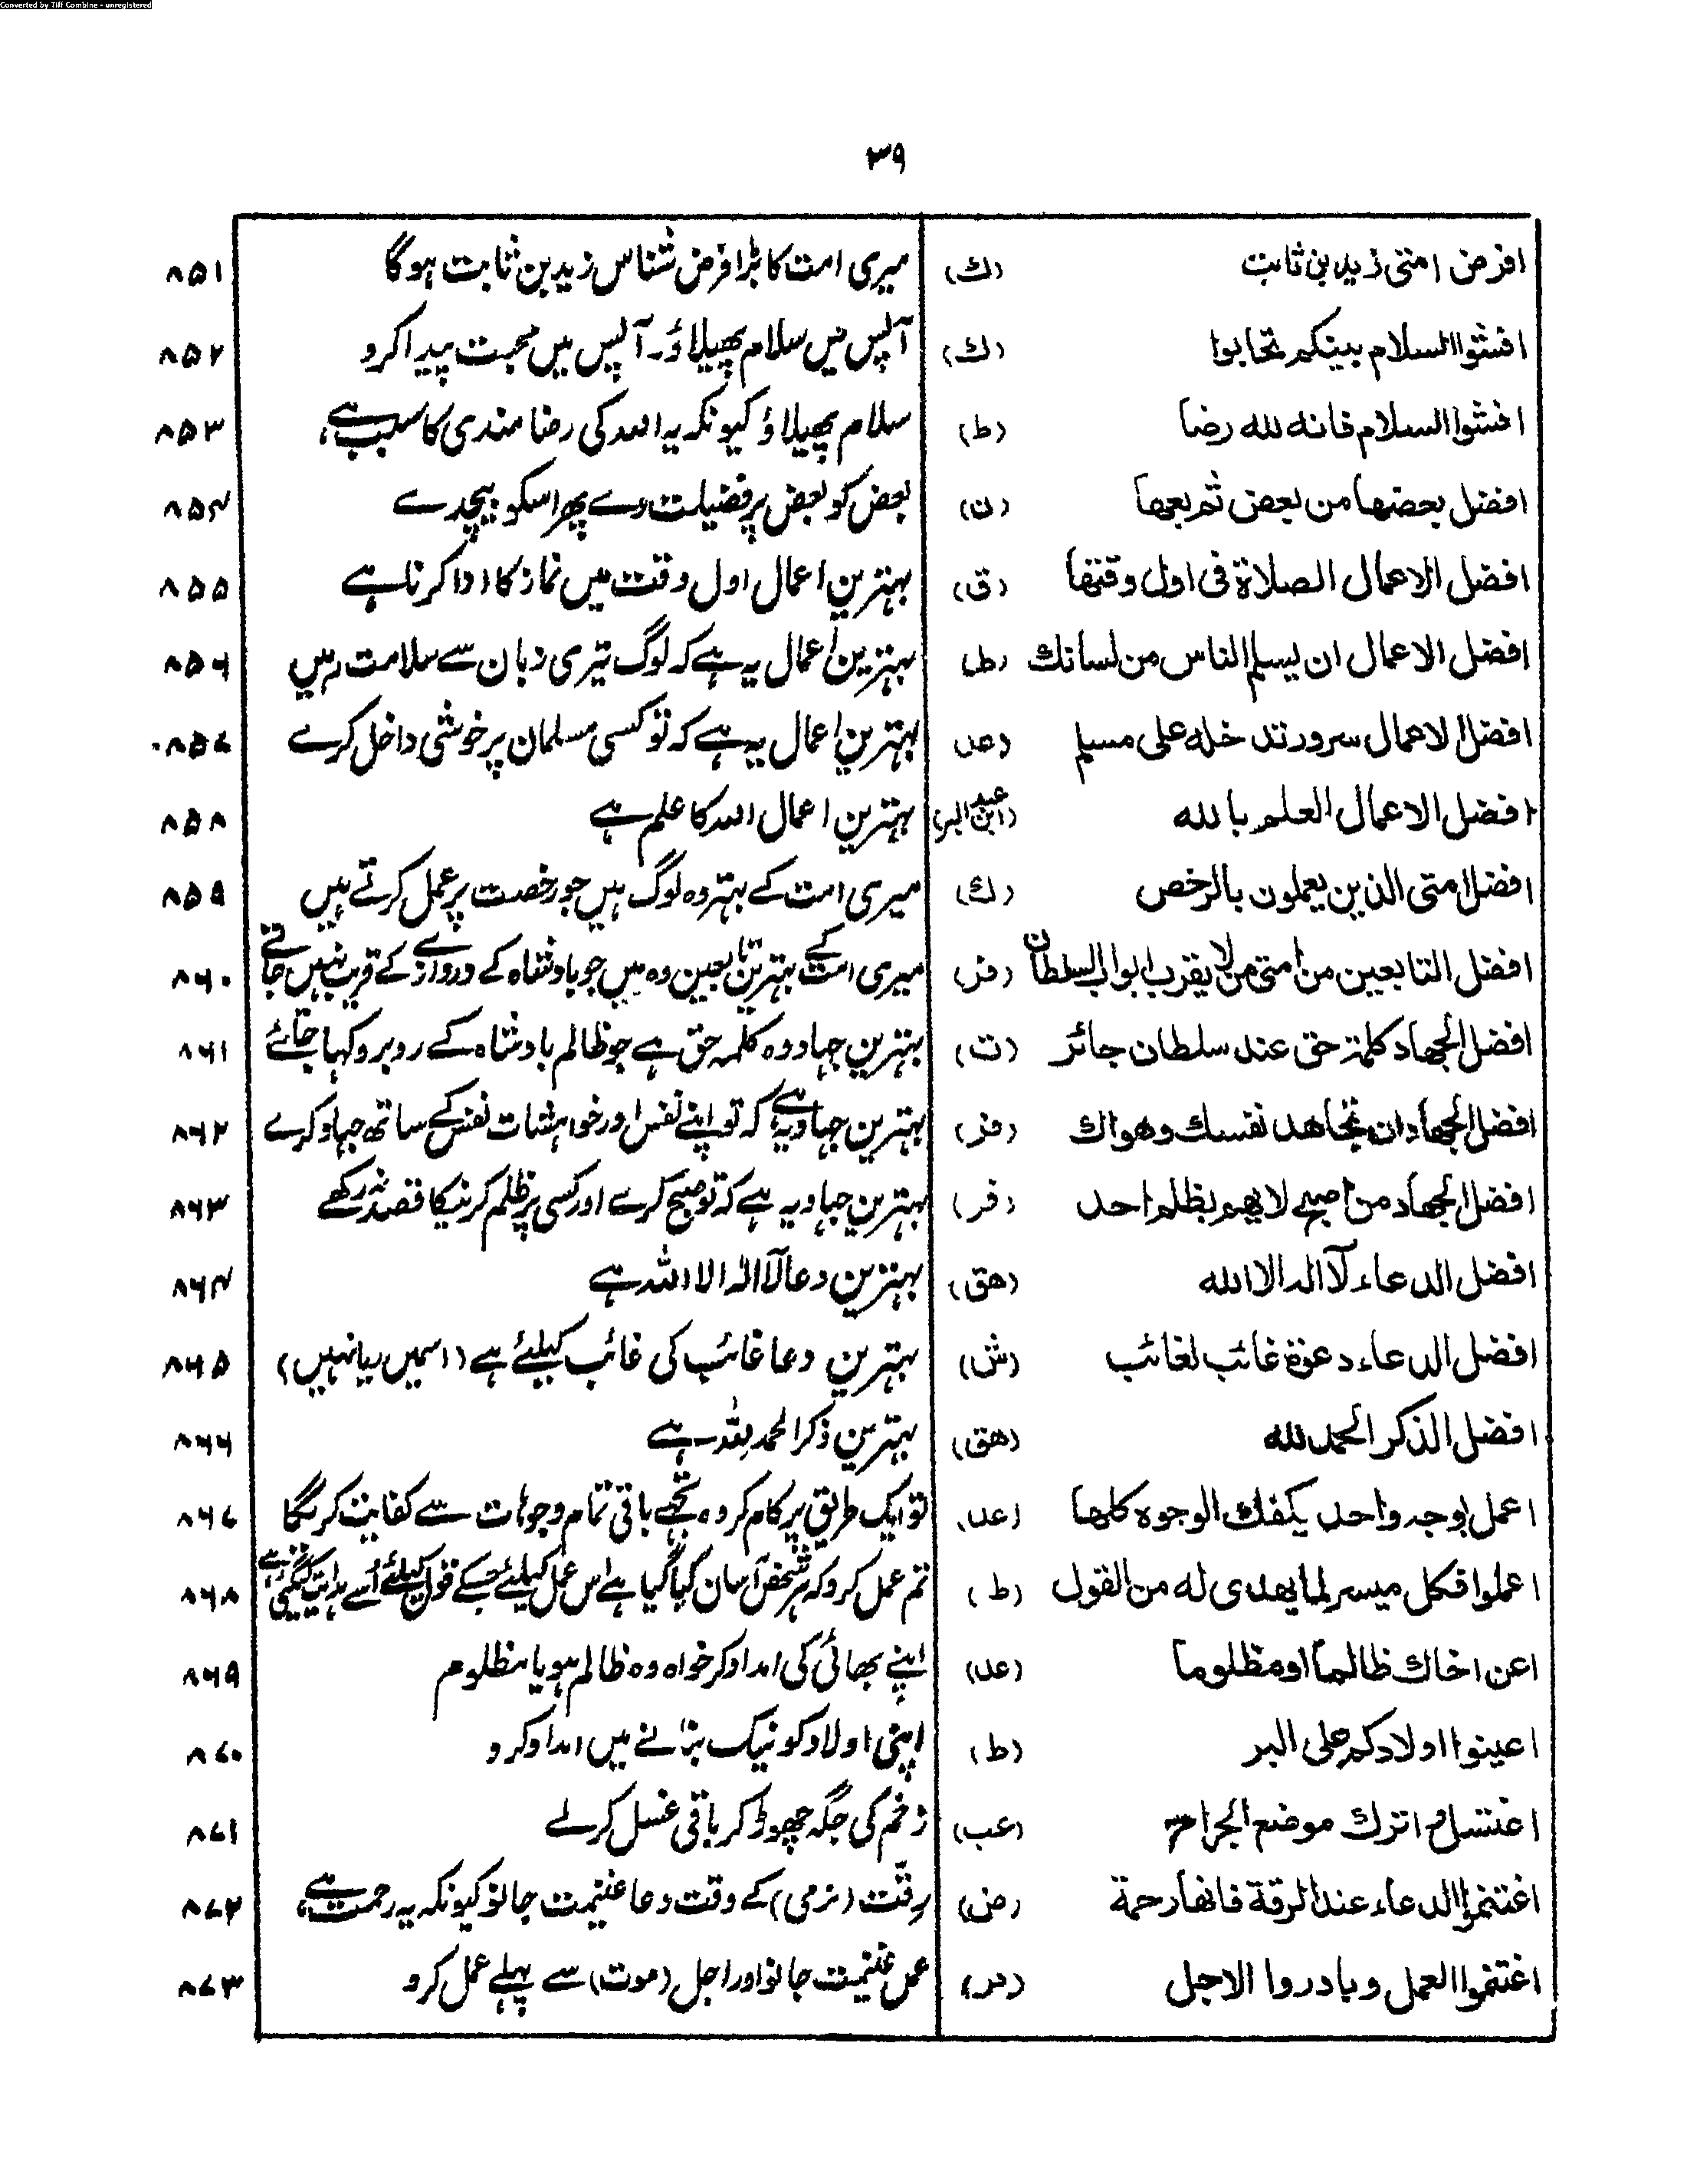 Converted by Tiff Combine - unregistered
۳۹
افرض امتی زید بن ثابت (ك) میری امت کا بڑا فرض شناس زید بن ثابت ہوگا ۸۵۱
افشوا السلام بینکم تحابوا (ك) آپس میں سلام پھیلاؤ۔ آپس میں محبت پیدا کرو ۸۵۲
افشوا السلام فانه لله رضا (ط) سلام پھیلاؤ کیونکہ یہ اللہ کی رضا مندی کا سبب ہے، ۸۵۳
افضل بعضها من بعض ثم بعها (ن) بعض کو بعض پر فضیلت دے پھر اسکو بیچدے ۸۵۴
افضل الاعمال الصلاة فی اول وقتها (ق) بہترین اعمال اول وقت میں نماز کا ادا کرنا ہے ۸۵۵
افضل الاعمال ان یسلم الناس من لسانك (ط) بہترین اعمال یہ ہے کہ لوگ تیری زبان سے سلامت رہیں ۸۵۶
افضل الاعمال سرور تدخله علی مسلم (عد) بہترین اعمال یہ ہے کہ تو کسی مسلمان پر خوشی داخل کرے ۸۵۷
افضل الاعمال العلم بالله (ابن عبد البر) بہترین اعمال اللہ کا علم ہے ۸۵۸
افضل امتی الذین یعملون بالرخص (ك) میری امت کے بہتر وہ لوگ ہیں جو رخصت پر عمل کرتے ہیں ۸۵۹
افضل التابعین من امتی من لا یقرب ابواب السلطان (فر) میری امت کے بہترین تابعین وہ ہیں جو بادشاہ کے دروازے کے قریب نہیں جاتے ۸۶۰
افضل الجهاد کلمة حق عند سلطان جائر (ت) بہترین جہاد وہ کلمہ حق ہے جو ظالم بادشاہ کے روبرو کہا جائے ۸۶۱
افضل الجهاد ان تجاهد نفسك وهواك (فر) بہترین جہاد یہ ہے کہ تو اپنے نفس اور خواہشات نفس کے ساتھ جہاد کرے ۸۶۲
افضل الجهاد من اصبح لا یهم بظلم احد (فر) بہترین جہاد یہ ہے کہ تو صبح کرے اور کسی پر ظلم کرنیکا قصد نہ رکھے ۸۶۳
افضل الدعاء لآ اله الا الله (هق) بہترین دعا لآ الہ الا اللہ ہے ۸۶۴
افضل الدعاء دعوة غائب لغائب (ش) بہترین دعا غائب کی غائب کیلئے ہے (اسمیں ریا نہیں) ۸۶۵
افضل الذکر الحمد لله (هق) بہترین ذکر الحمد للہ ہے ۸۶۶
اعمل لوجه واحد یکفك الوجوه کلها (عد) تو ایک طریق پر کام کر وہ تجھے باقی تمام وجوہات سے کفایت کریگا ۸۶۷
اعملوا فکل میسر لما یهدی له من القول (ط) تم عمل کرو کہ ہر شخص آسان کیا گیا ہے اس عمل کیلئے جسکے قول کیلئے اُسے ہدایت کیگئی ہے ۸۶۸
اعن اخاك ظالما او مظلوما (عد) اپنے بھائی کی امداد کر خواہ وہ ظالم ہو یا مظلوم ۸۶۹
اعینوا اولادکم علی البر (ط) اپنی اولاد کو نیک بنانے میں امداد کرو ۸۷۰
اغتسل و اترك موضع الجراح (عب) زخم کی جگہ چھوڑ کر باقی غسل کرلے ۸۷۱
اغتنموا الدعاء عند الرقة فانها رحمة (فر) رقّت (نرمی) کے وقت دعا غنیمت جانو کیونکہ یہ رحمت ہے، ۸۷۲
اغتنموا العمل و بادروا الاجل عمل غنیمت جانو اور اجل (موت) سے پہلے عمل کرو ۸۷۳